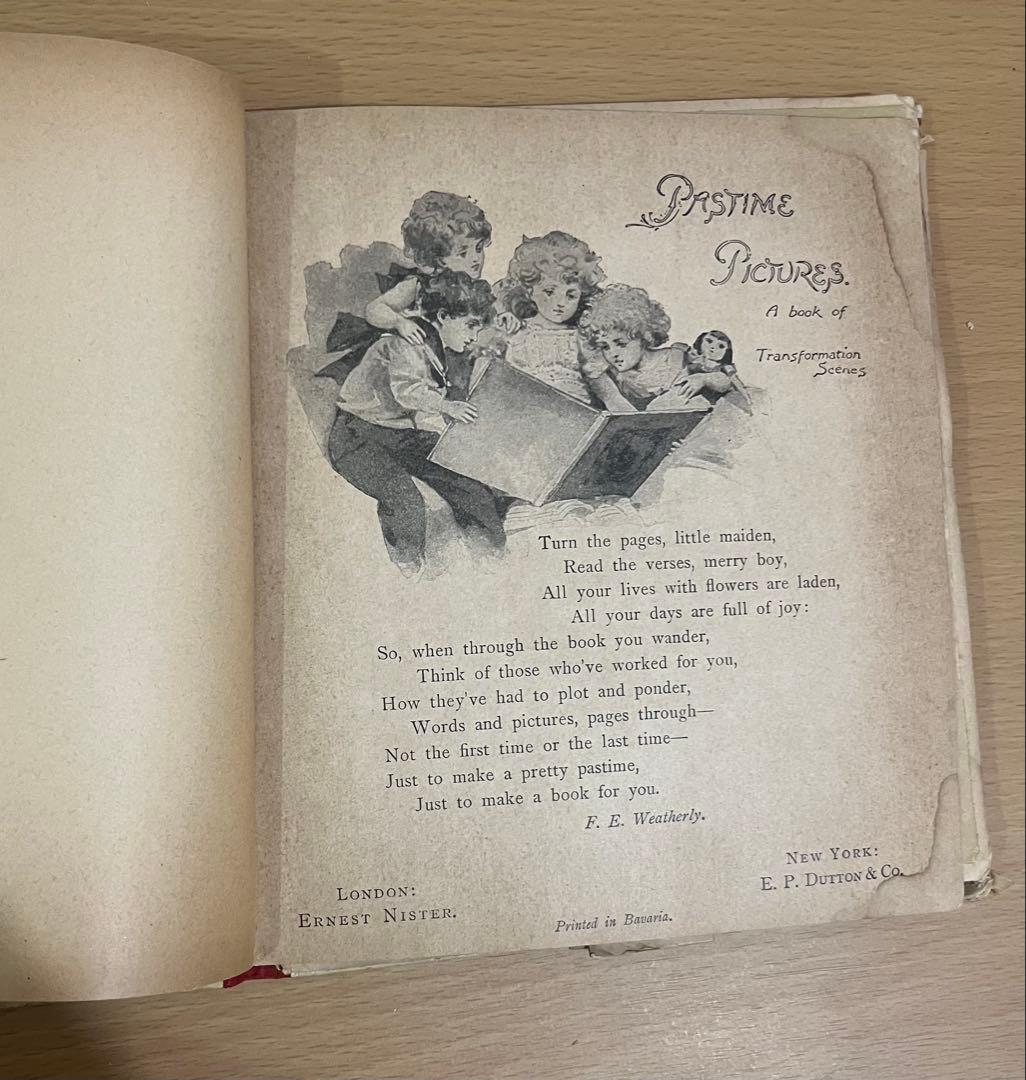 PASTIME
PICTURES.
A book of
Transformation
Scenes
Turn the pages, little maiden,
Read the verses, merry boy,
All your lives with flowers are laden,
All your days are full of joy:
So, when through the book you wander,
Think of those who've worked for you,
How they've had to plot and ponder,
Words and pictures, pages through—
Not the first time or the last time—
Just to make a pretty pastime,
Just to make a book for you.
F. E. Weatherly.
LONDON:
ERNEST NISTER.
Printed in Bavaria.
NEW YORK:
E. P. DUTTON & CO.